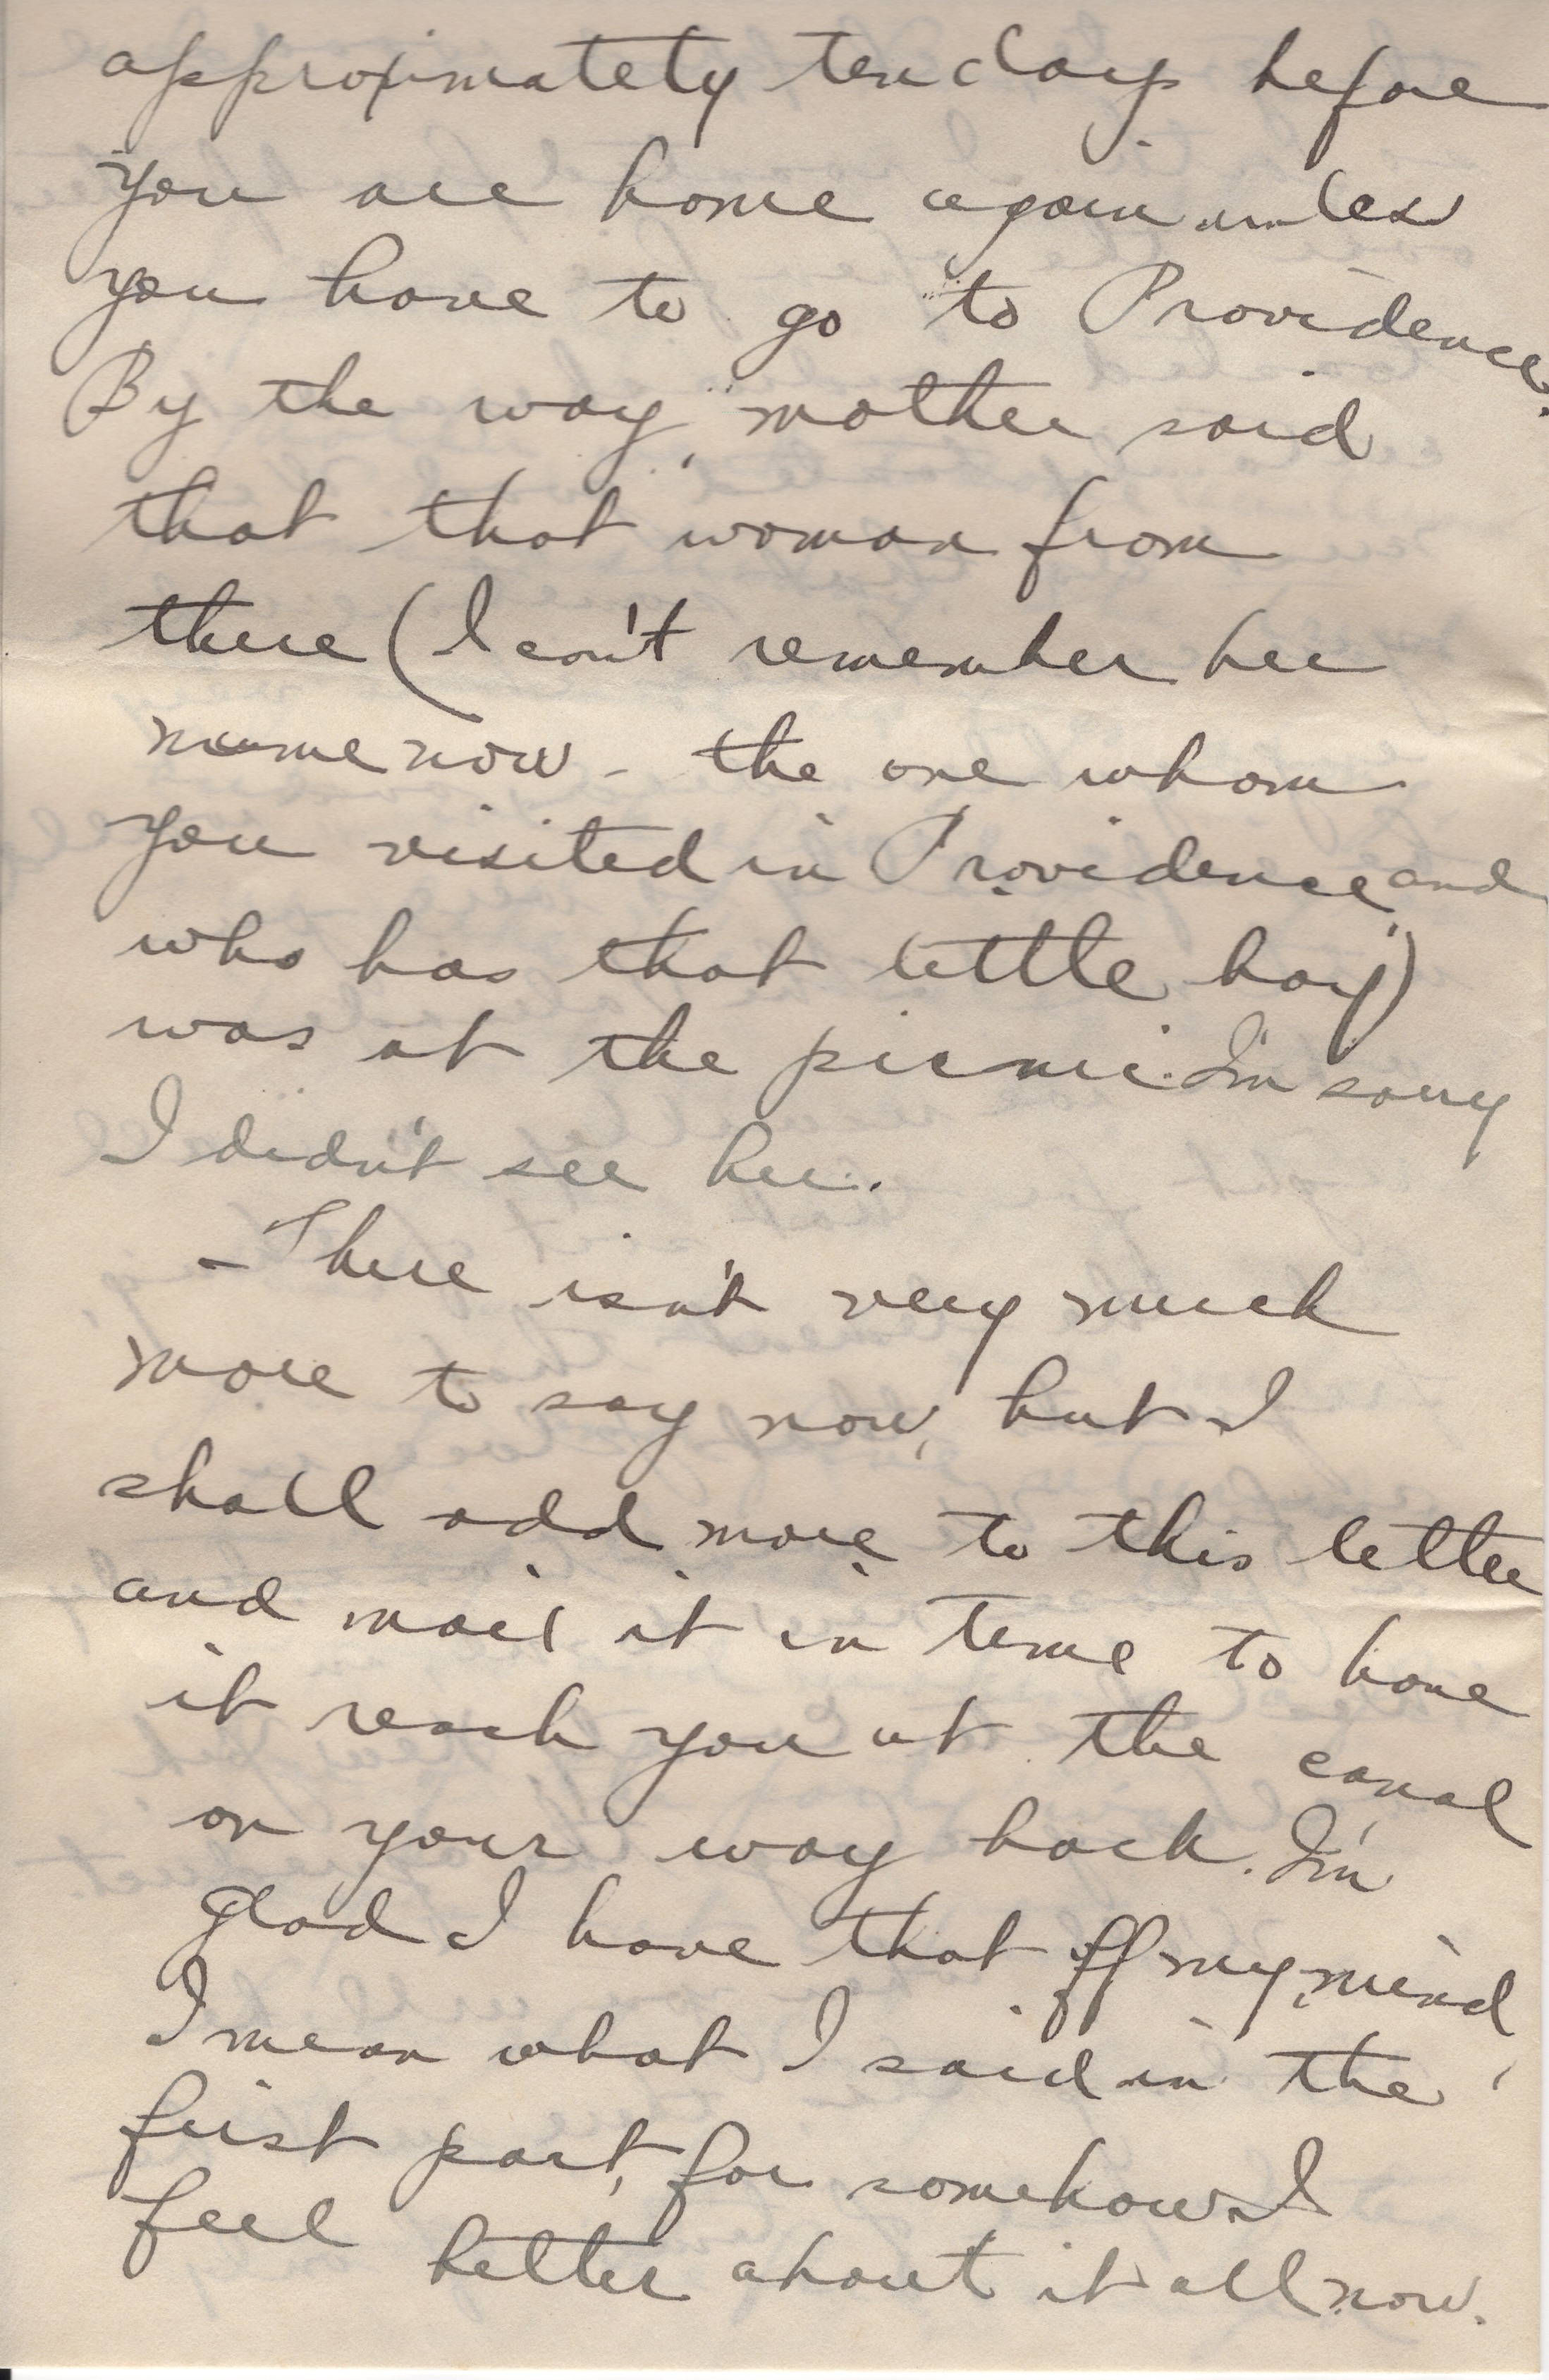 approximately ten days before
you are home again unless
you have to go to Providence.
By the way, mother said
that that woman from
there (I can't remember her
name now - the one whom
you visited in Providence and
who has that little boy)
was at the picnic. I'm sorry
I didn't see her.
- There isn't very much
more to say now, but I
shall add more to this letter
and mail it in time to have
it reach you at the canal
on your way back. I'm
glad I have that off my mind,
I mean what I said in the
first part, for somehow I
feel better about it all now.